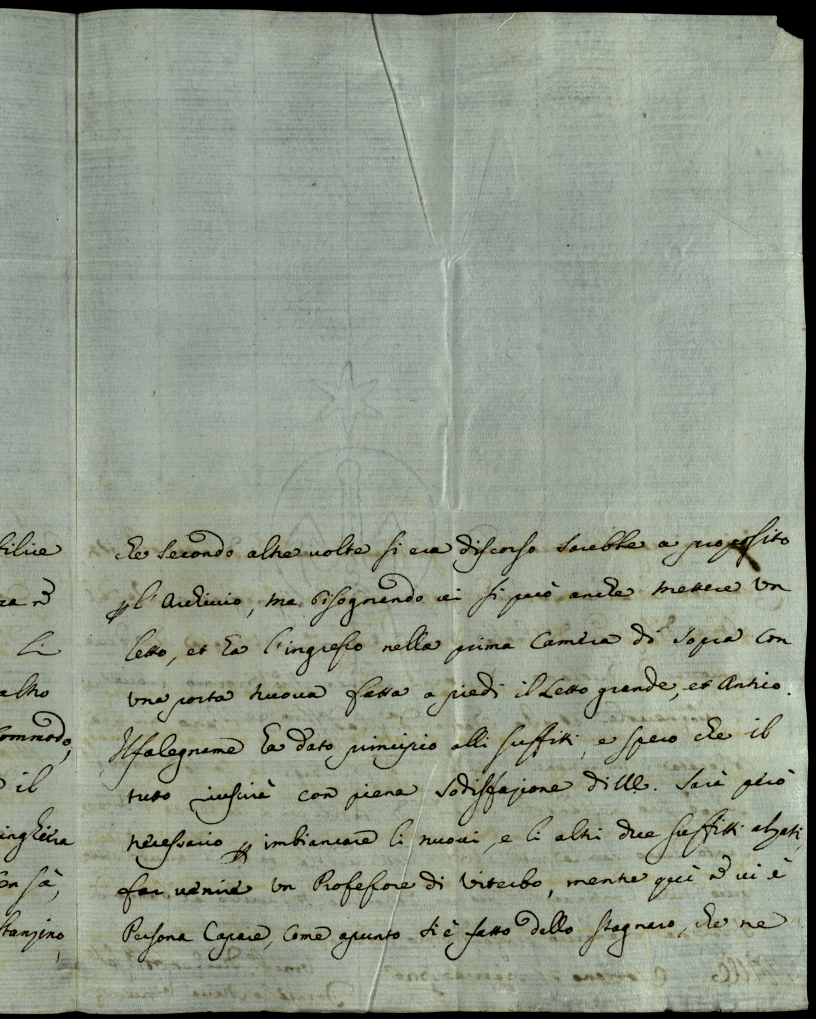 che secondo altre volte si era discorso sarebbe a proposito
p l'Archivio, ma bisognando vi si può anche mettere un
letto, et ha l'ingresso nella prima Camera di sopra con
una porta nuova fatta a piedi il Letto grande, et Antico.
Il falegname ha dato principio alli suffitti, e spero che il
tutto riuscirà con piena sodisfazione di
Sarà però
necessario p imbiancare li nuovi, e li altri due suffitti alzati,
far venire un Professore di Viterbo, mentre quì ñ vi è
Persona Capace, come apunto si è fatto dello stagnaro, che ne